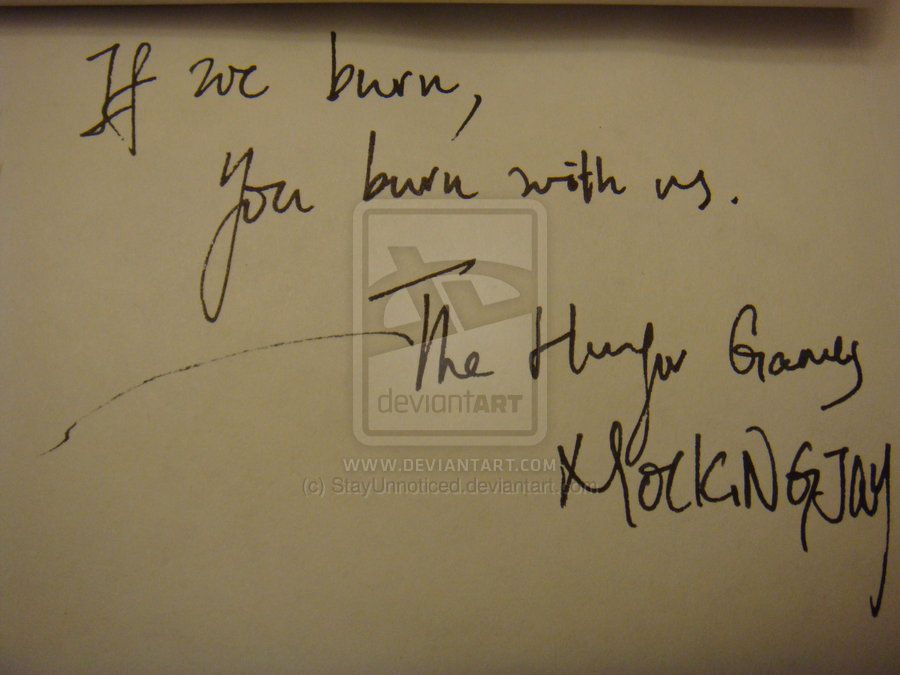 If we burn,
you burn with us.
The Hunger Games
MOCKiNGJAY
deviantART
WWW.DEVIANTART.COM
(c) StayUnnoticed.deviantart.com